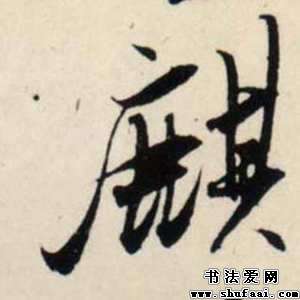 麒
书法爱网
www.shufaai.com